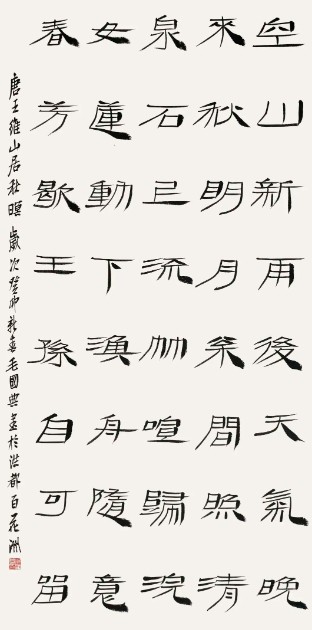 空山新雨後天氣晚
來秋明月松間照清
泉石上流竹喧歸浣
女蓮動下漁舟隨意
春芳歇王孫自可留
唐王維山居秋暝 歲次癸卯新春毛國典書於洪都百花洲